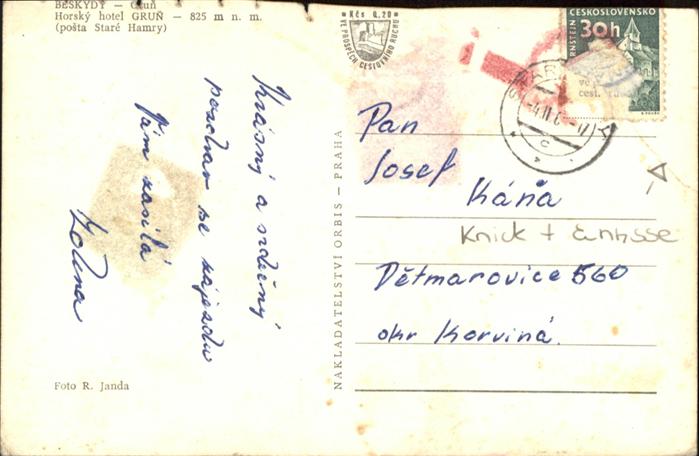 BESKYDY — Gruň
Horský hotel GRUŇ — 825 m n. m.
(pošta Staré Hamry)
Krásný a srdečný
pozdrav ze zájezdu
Vám zasílá
Foto R. Janda
NAKLADATELSTVÍ ORBIS — PRAHA
Kčs 0,20
VE PROSPĚCH CESTOVNÍHO RUCHU
ČESKOSLOVENSKO
30h
Pan
Josef
Káňa
Knick +
Dětmarovice 560
okr Karviná.